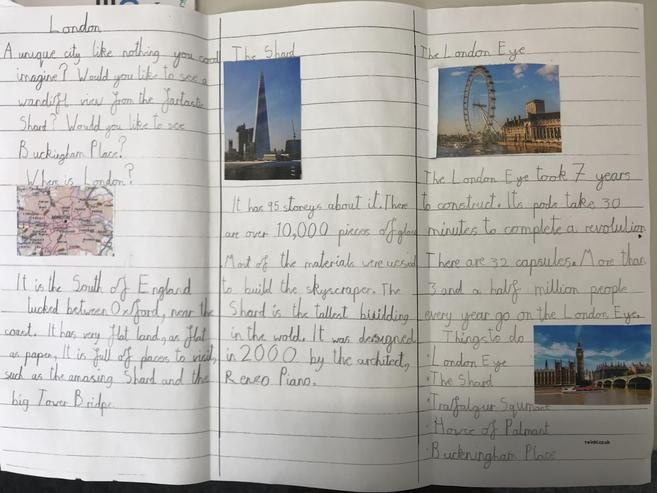 London
A unique city like nothing you cood
imagine? Would you like to see a
wandifl view from the fartastc
Shard? Would you like to see
Buckingham Place?
Where is London?
It is the South of England
tucked between Oxford, near the
coast. It has very flat land, as flat
as paper. It is full of places to visit,
such as the amasing Shard and the
big Tower Bridge.
The Shard
It has 95 storeys about it. There
are over 10,000 pieces of glass
Most of the materials were
to build the skyscraper. The
Shard is the tallest building
in the wold. It was desugned
in 2000 by the architect,
Reneo Piano.
The London Eye
The London Eye took 7 years
to construct. Its pods take 30
minutes to complete a revolution.
There are 32 capsules. More than
3 and a half million people
every year go on the London Eye.
Things to do
·London Eye
·The Shard
·Trafalgur Squmare
·House of Palmant
·Buckeningham Place
twinkl.co.uk